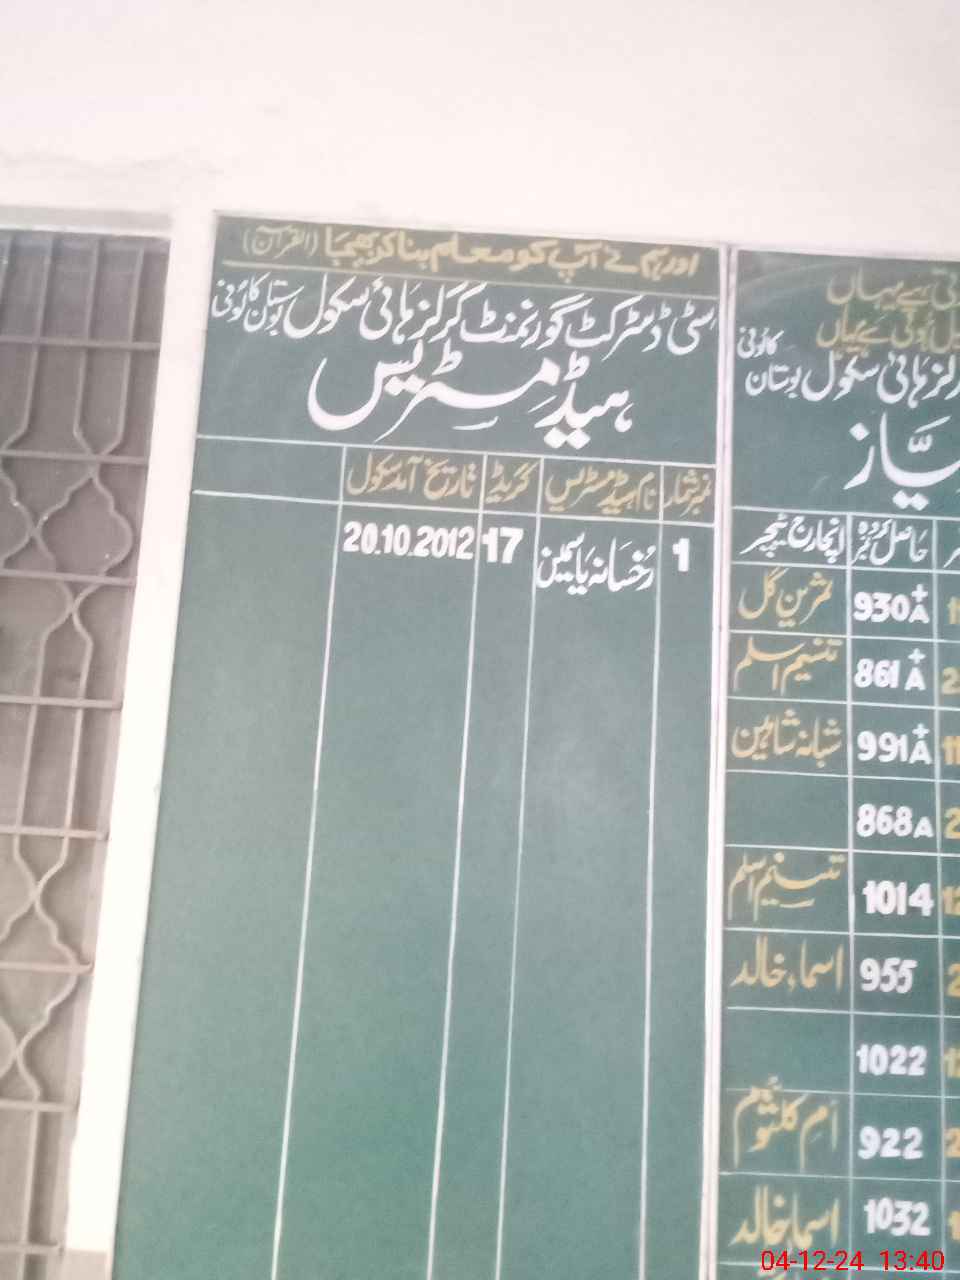 اور ہم نے آپ کو معلم بنا کر بھیجا (القرآن)
سٹی ڈسٹرکٹ گورنمنٹ گرلز ہائی سکول بوستان کالونی
ہیڈ مسٹریس
نمبر شمار نام ہیڈ مسٹریس گریڈ تاریخ آمد سکول
1 رخسانہ یاسمین 17 20.10.2012
ہے یہاں
ہوتی ہے یاں
ہائی سکول بوستان کالونی
حاصل کردہ نمبر انچارج ٹیچر
930 A+ ثمرین گل
861 A+ تسنیم اسلم
991 A+ شبانہ شاہین
868 A
1014 تسنیم اسلم
955 اسماء خالد
1022
922 ام کلثوم
1032 اسماء خالد
04-12-24 13:40